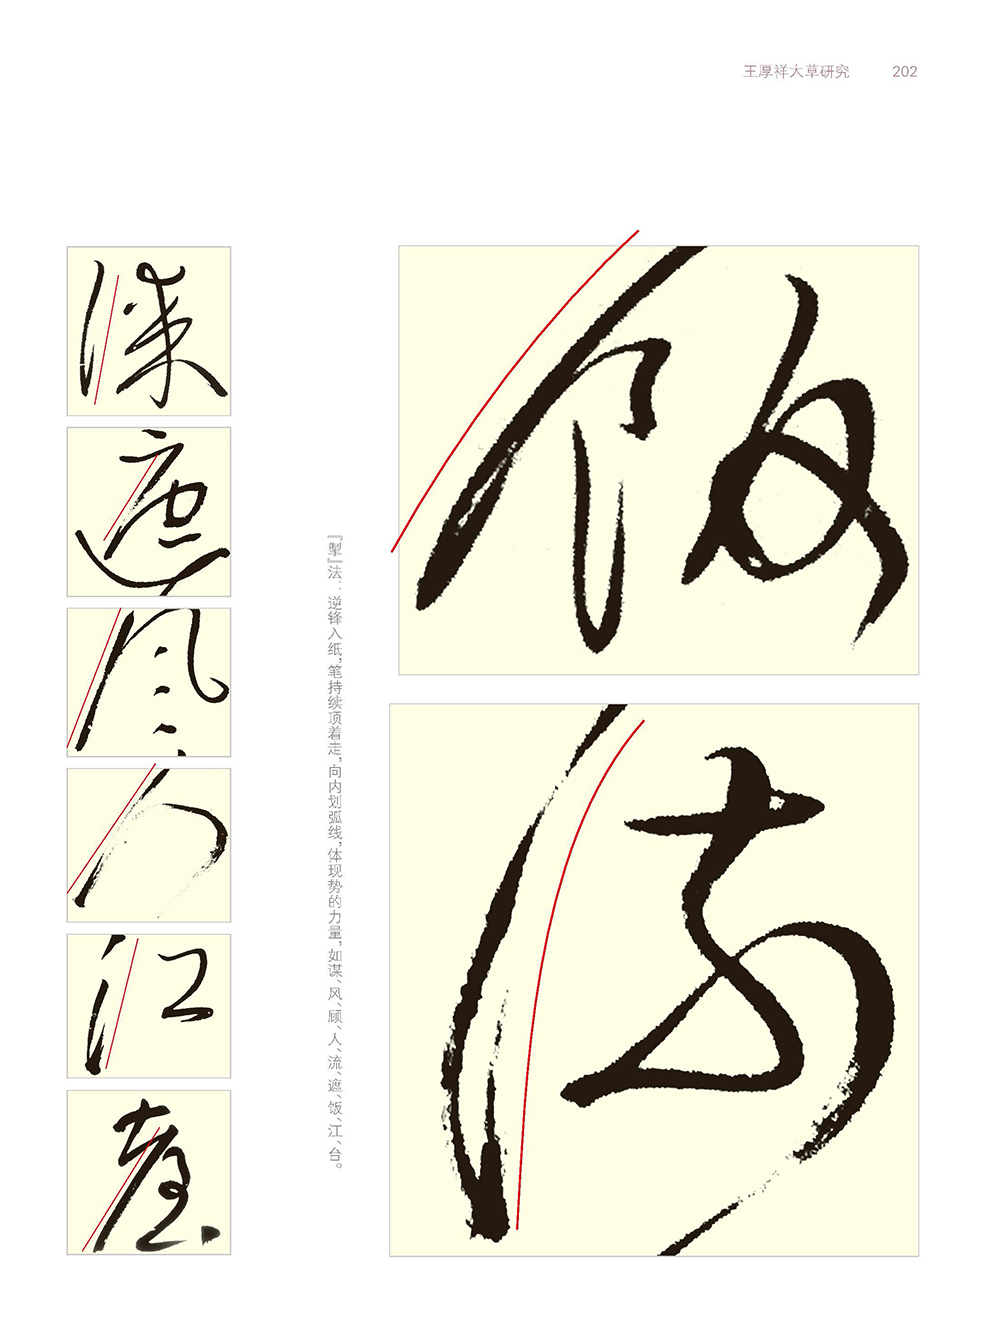 王厚祥大草研究 202
『掣』法：逆锋入纸，笔持续顶着走，向内划弧线，体现势的力量，如谋、风、顾、人、流、遮、饭、江、台。
饭
流
谋
遮
风
人
江
台